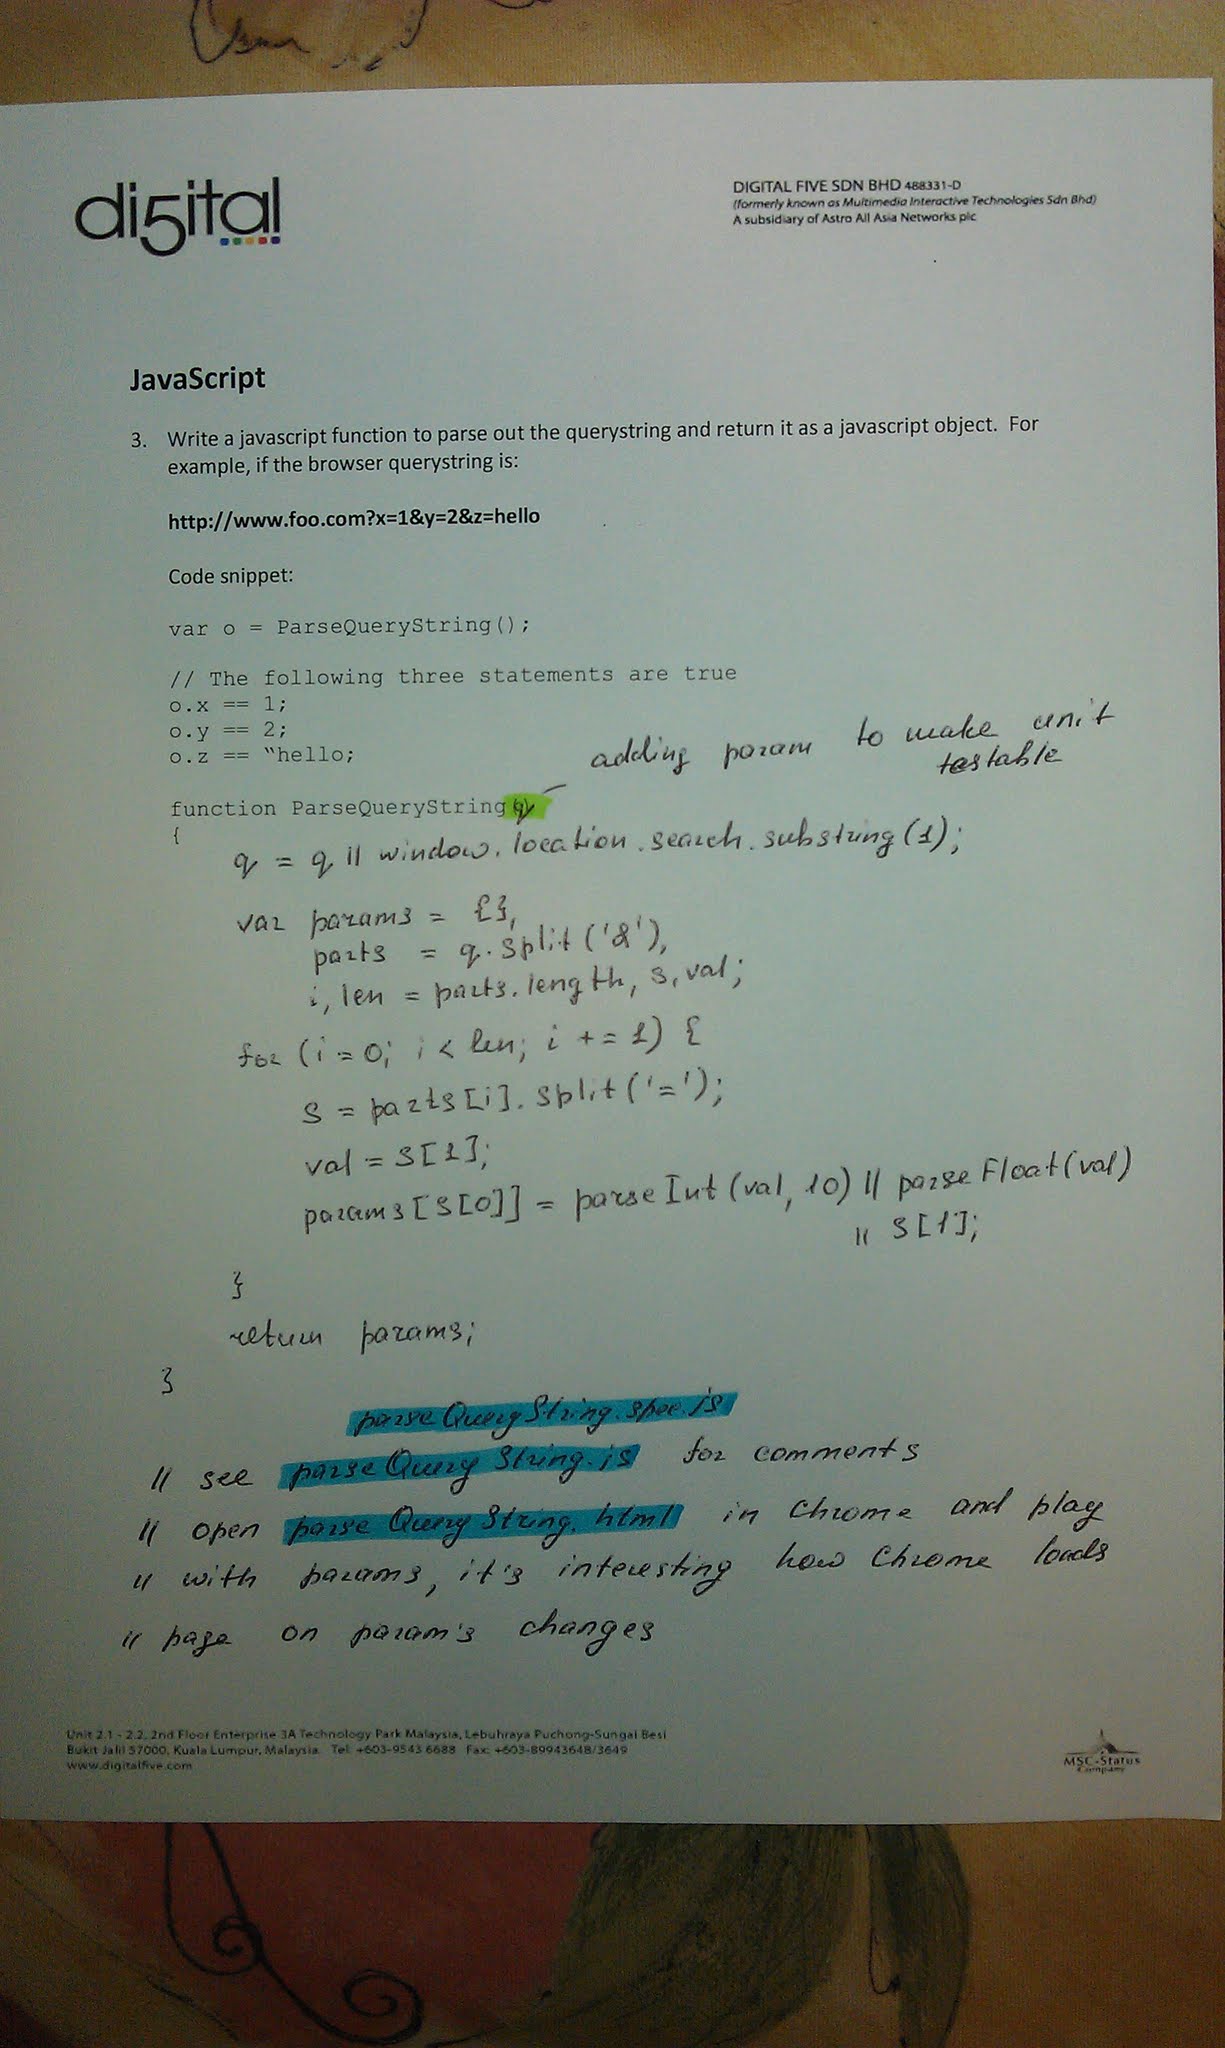 di5ital
DIGITAL FIVE SDN BHD 488331-D
(formerly known as Multimedia Interactive Technologies Sdn Bhd)
A subsidiary of Astro All Asia Networks plc
JavaScript
3. Write a javascript function to parse out the querystring and return it as a javascript object. For
example, if the browser querystring is:
http://www.foo.com?x=1&y=2&z=hello
Code snippet:
var o = ParseQueryString();
// The following three statements are true
o.x == 1;
o.y == 2;
o.z == "hello;
adding param to make unit
testable
function ParseQueryString(q)
{
q = q || window.location.search.substring(1);
var params = {},
parts = q.split('&'),
i, len = parts.length, s, val;
for (i = 0; i < len; i += 1) {
s = parts[i].split('=');
val = s[1];
params[s[0]] = parseInt(val, 10) || parseFloat(val)
|| s[1];
}
return params;
}
parseQueryString.spec.js
// see parseQueryString.js for comments
// open parseQueryString.html in Chrome and play
// with params, it's interesting how Chrome loads
// page on param's changes
Unit 2.1 - 2.2, 2nd Floor Enterprise 3A Technology Park Malaysia, Lebuhraya Puchong-Sungai Besi
Bukit Jalil 57000, Kuala Lumpur, Malaysia. Tel: +603-9543 6688 Fax: +603-89943648/3649
www.digitalfive.com
MSC-Status
Company